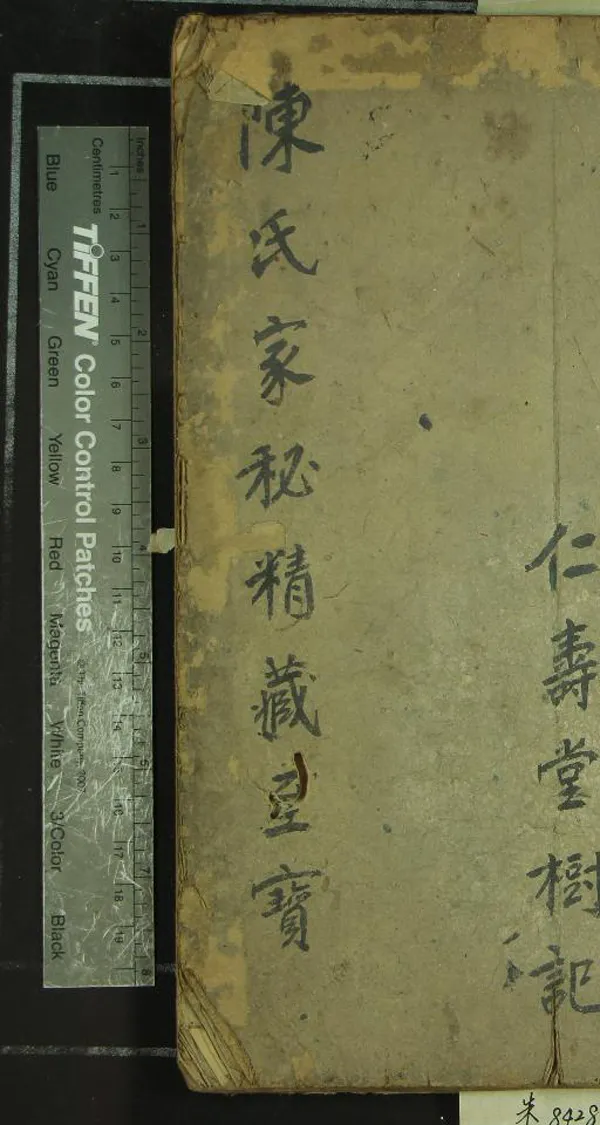 陳氏家秘精藏至寶
仁壽堂樹記
Inches
1 2 3 4 5 6 7 8
Centimetres
1 2 3 4 5 6 7 8 9 10 11 12 13 14 16 17 18 19
TIFFEN Color Control Patches
Blue Cyan Green Yellow Red Magenta White 3/Color Black
8428